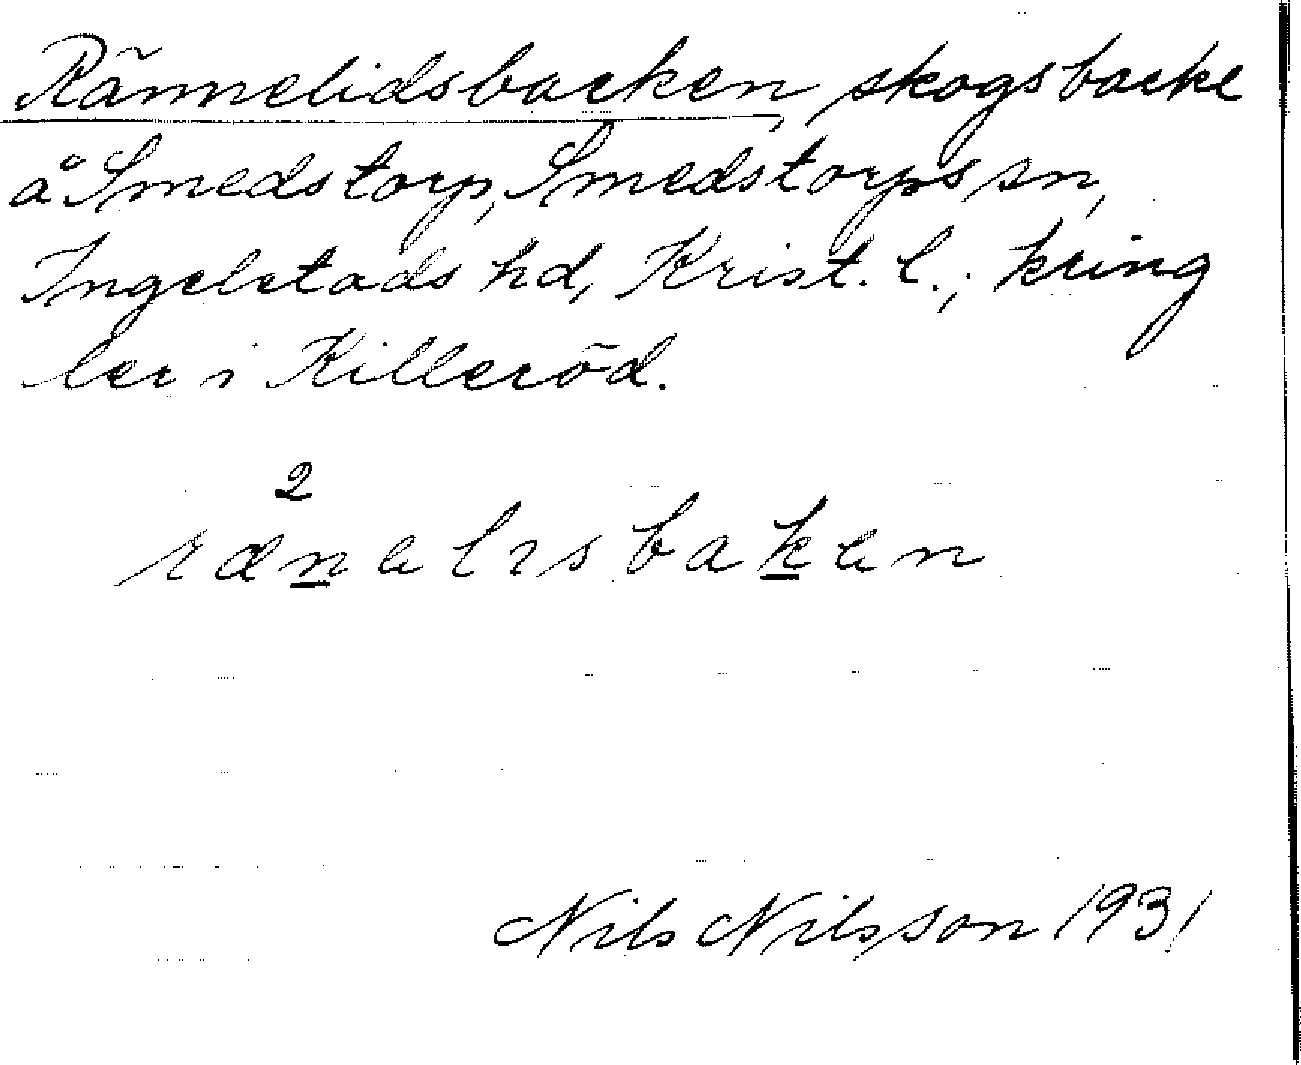 Rännelidsbacken, skogsbacke
å Smedstorp, Smedstorps sn,
Ingelstads hd, Krist. l.; kring
ler i Killeröd.
2
rænelısbaken
Nils Nilsson 1931